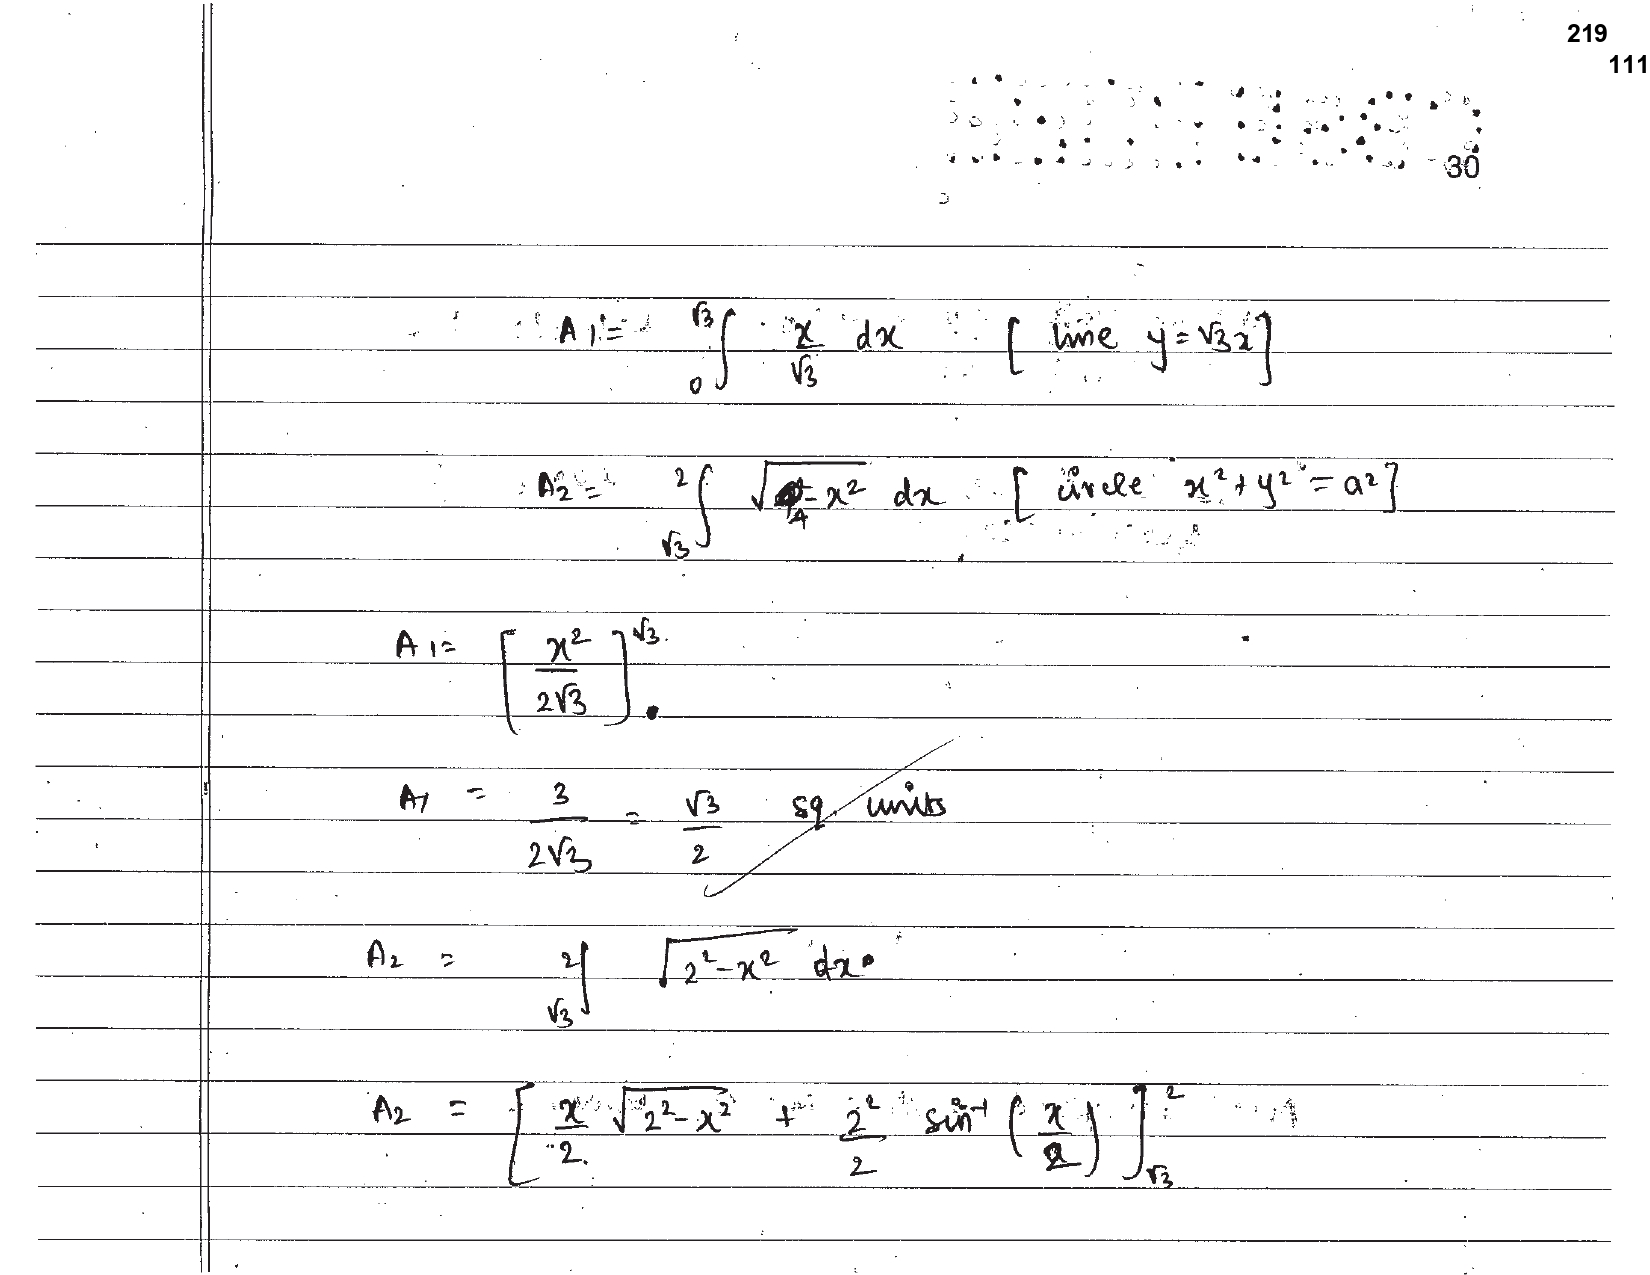 219
111
30
A1 = √3 ∫ 0 x/√3 dx [ line y = √3x ]
A2 = 2 ∫ √3 √(4 - x²) dx [ circle x² + y² = a² ]
A1 = [ x² / 2√3 ] √3 0
A1 = 3 / 2√3 = √3 / 2 sq. units
A2 = 2 ∫ √3 √(2² - x²) dx
A2 = [ x/2 √(2² - x²) + 2²/2 sin⁻¹ (x/2) ] 2 √3